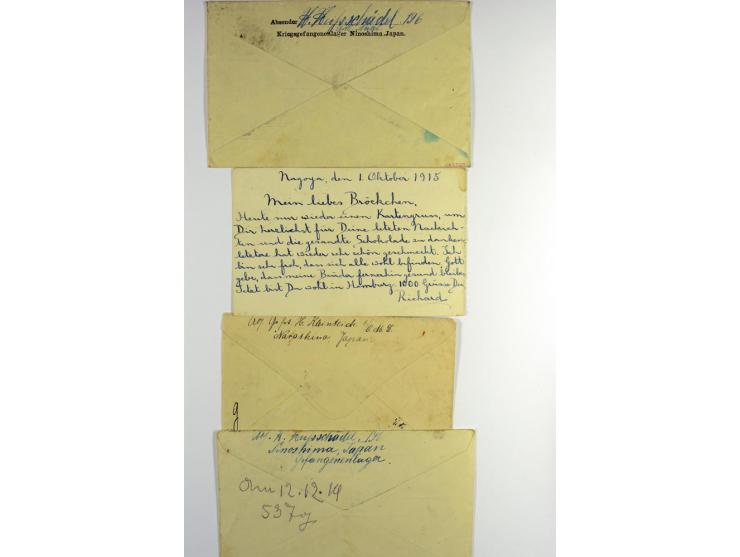 Absender H. Hupschädel, 196
Kriegsgefangenenlager Ninoshima Japan.
Nagoya, den 1. Oktober 1915
Mein liebes Bröckchen,
Heute nur wieder einen Kartengruss, um
Dir herzlichst für Deine letzten Nachrich-
ten und die gesandte Schokolade zu danken,
letztere hat wieder sehr schön geschmeckt. Ich
bin sehr froh, dass sich alle wohl befinden. Gott
gebe, dass meine Brüder fernerhin gesund bleiben
Jetzt bist Du wohl in Hamburg. 1000 Grüsse Dein
Richard
Narashino, Japan
g
H. Hupschädel, 196
Ninoshima, Japan
Gefangenenlager.
12.12.19
537g